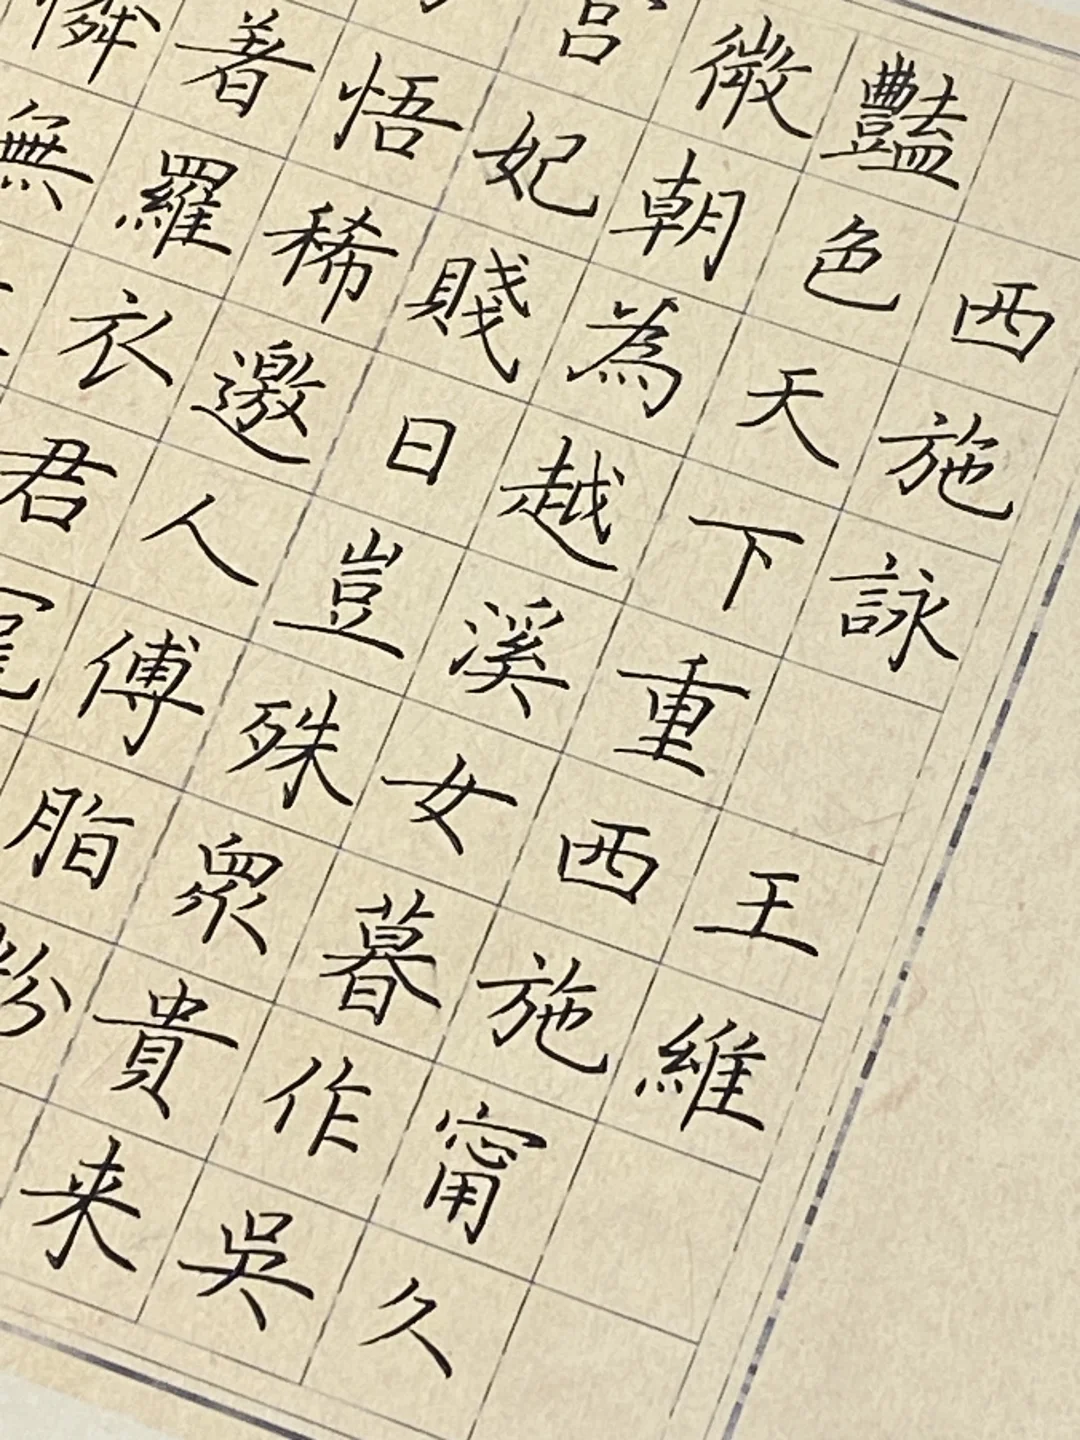 西施詠 王維
豔色天下重西施甯久
微朝為越溪女暮作吳
宮妃賤日豈殊眾貴来
悟稀邀人傅脂粉
著羅衣君
憐無